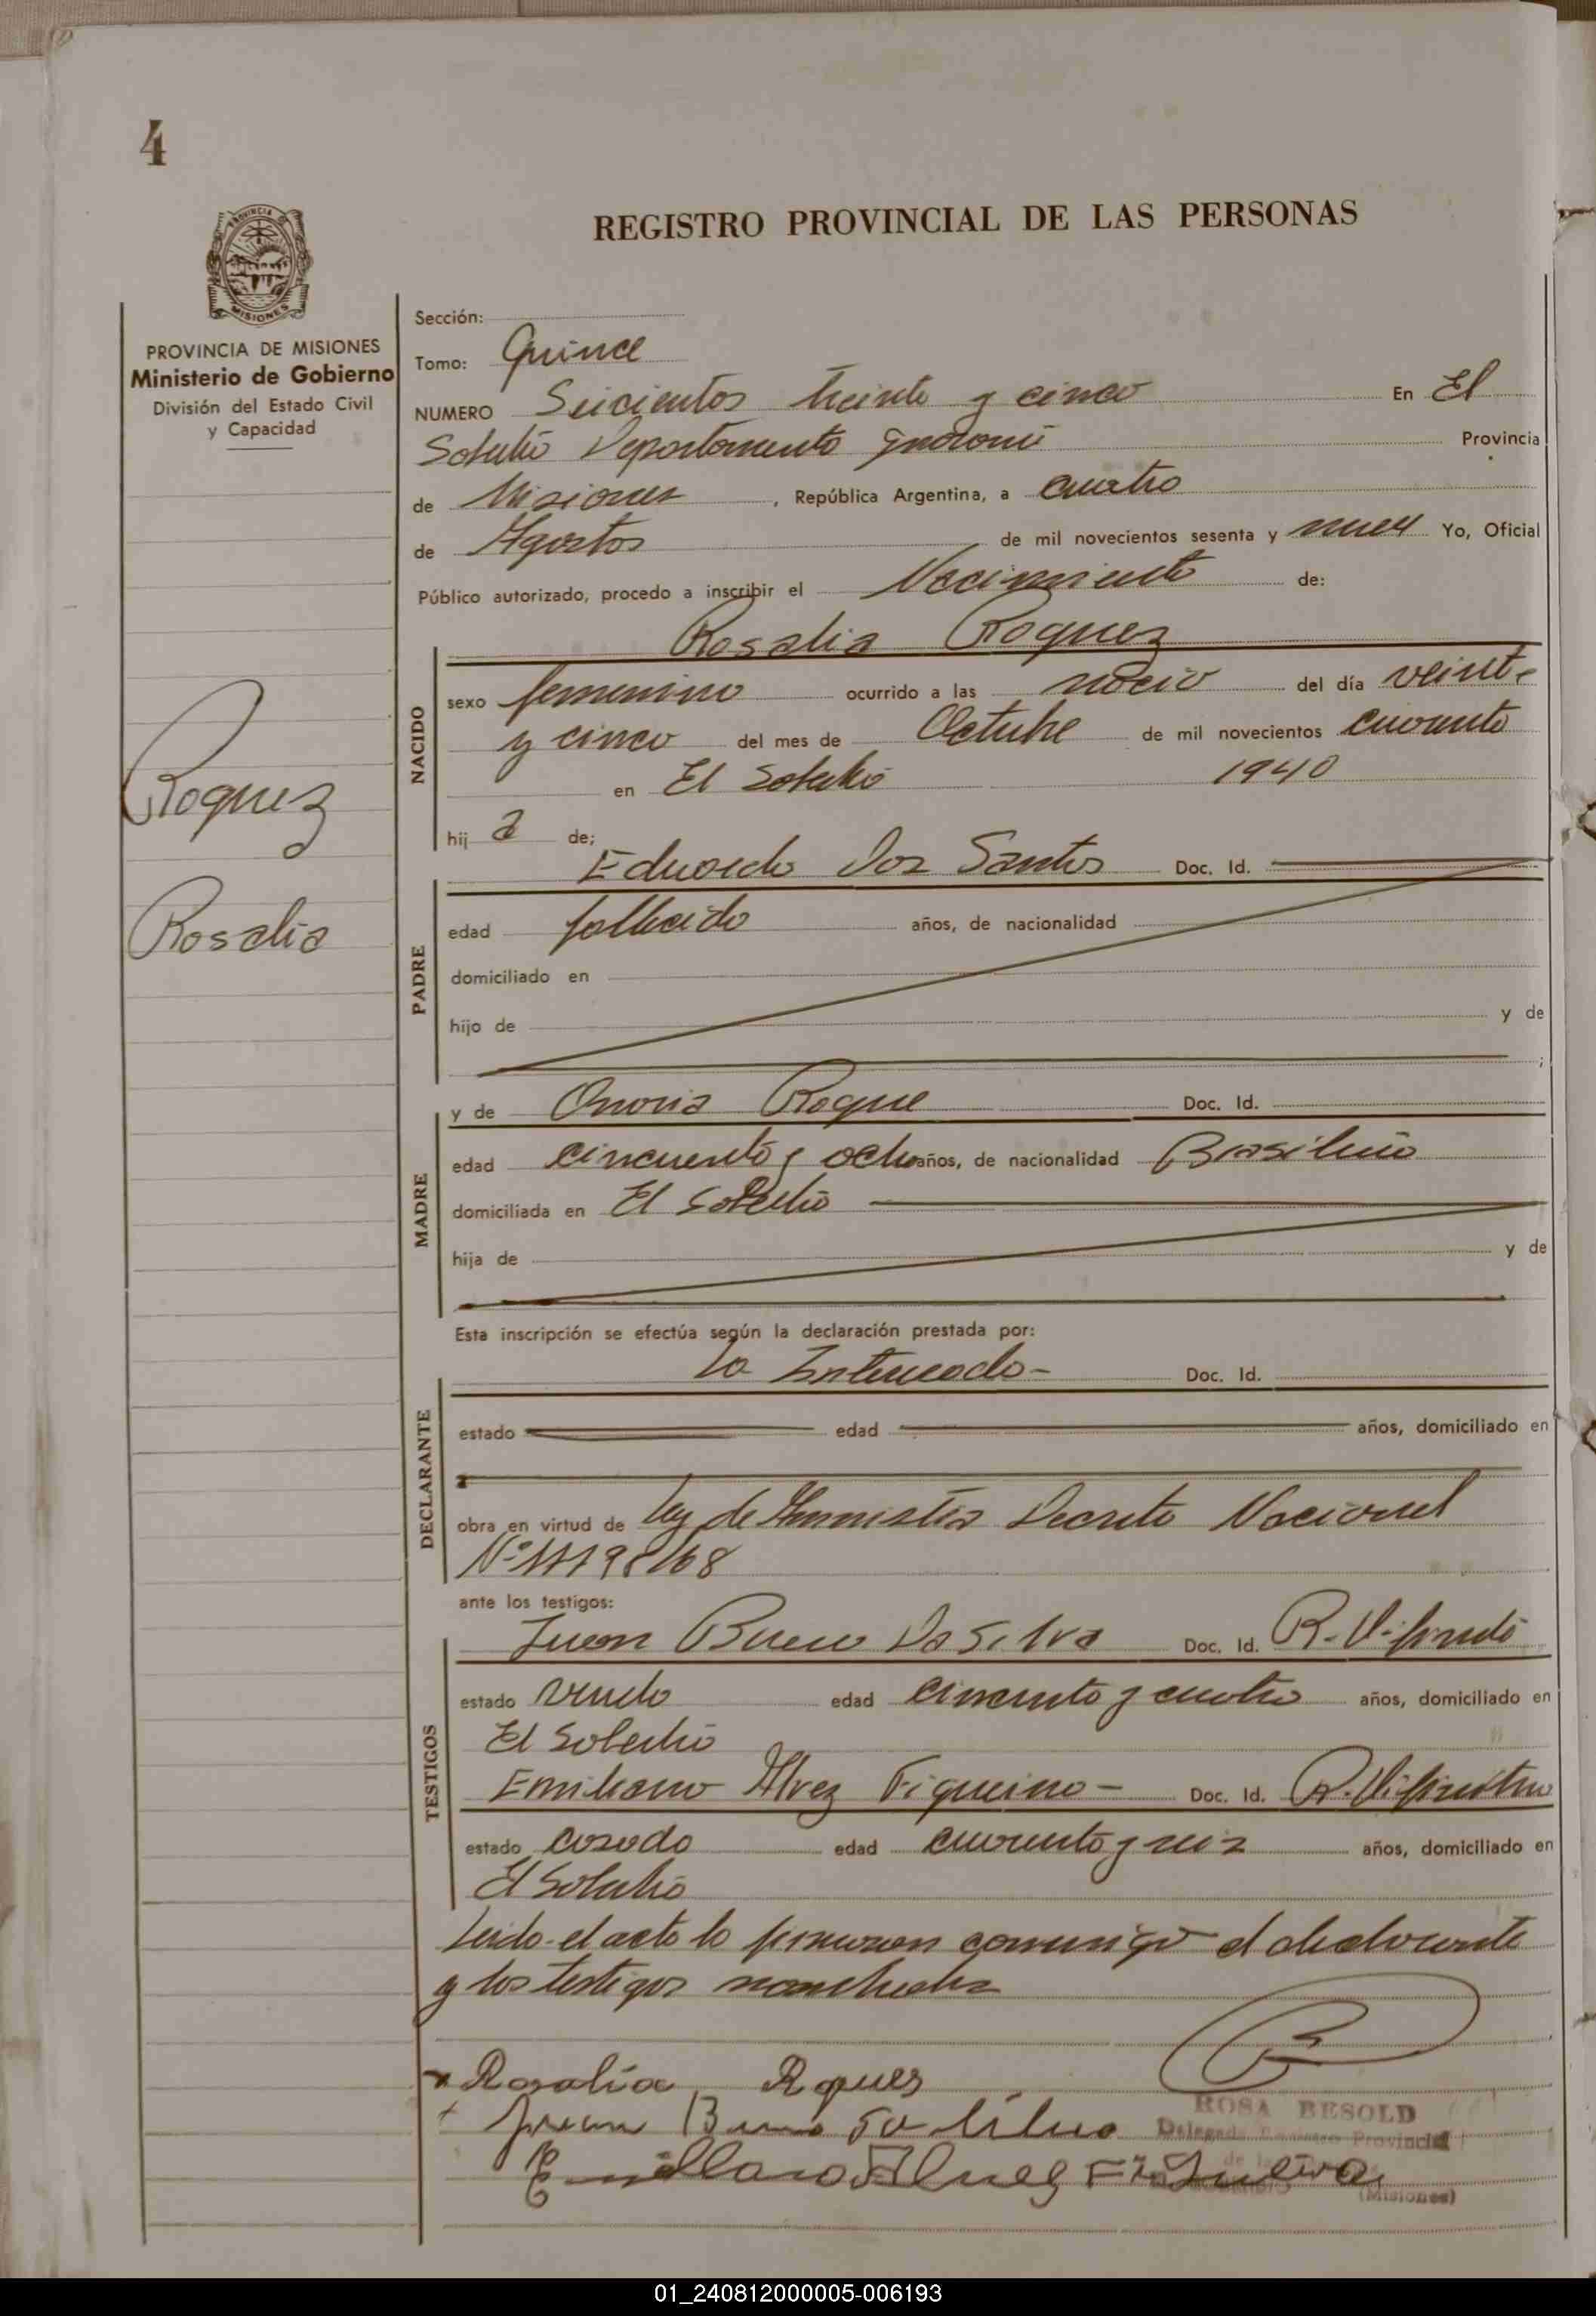 4
REGISTRO PROVINCIAL DE LAS PERSONAS
PROVINCIA DE MISIONES
Ministerio de Gobierno
División del Estado Civil
y Capacidad
Roquez
Rosalia
Sección:
Tomo: Quince
NUMERO Seicientos treinta y cinco En El
Soberbio Departamento Guarani Provincia
de Misiones , República Argentina, a cuatro
de Agostos de mil novecientos sesenta y nueve Yo, Oficial
Público autorizado, procedo a inscribir el Nacimiento de:
Rosalia Roquez
NACIDO
sexo femenino ocurrido a las nacio del día veinte
y cinco del mes de Octubre de mil novecientos cuarenta
en El Soberbio 1940
hij a de;
Eduardo Dos Santos Doc. Id.
PADRE
edad fallecido años, de nacionalidad
domiciliado en
hijo de y de
;
y de Onoria Roque Doc. Id.
MADRE
edad cincuenta y ocho años, de nacionalidad Brasileña
domiciliada en El Soberbio
hija de y de
Esta inscripción se efectúa según la declaración prestada por:
La Interesada- Doc. Id.
DECLARANTE
estado edad años, domiciliado en
obra en virtud de Ley de Amnistia Decreto Nacional
Nº
ante los testigos:
Juan Bueno Da Silva Doc. Id. R.
TESTIGOS
estado viudo edad cincuenta y cuatro años, domiciliado en
El Soberbio
Emiliano Alvez Figueino- Doc. Id. R.
estado casado edad cuarenta y seis años, domiciliado en
El Soberbio
Leido el acta la firmaron conmigo el declarante
y los testigos
Rosalía Rques
Juan
Emiliano Alves
ROSA BESOLD
Delegada Provincial
(Misiones)
01_240812000005-006193